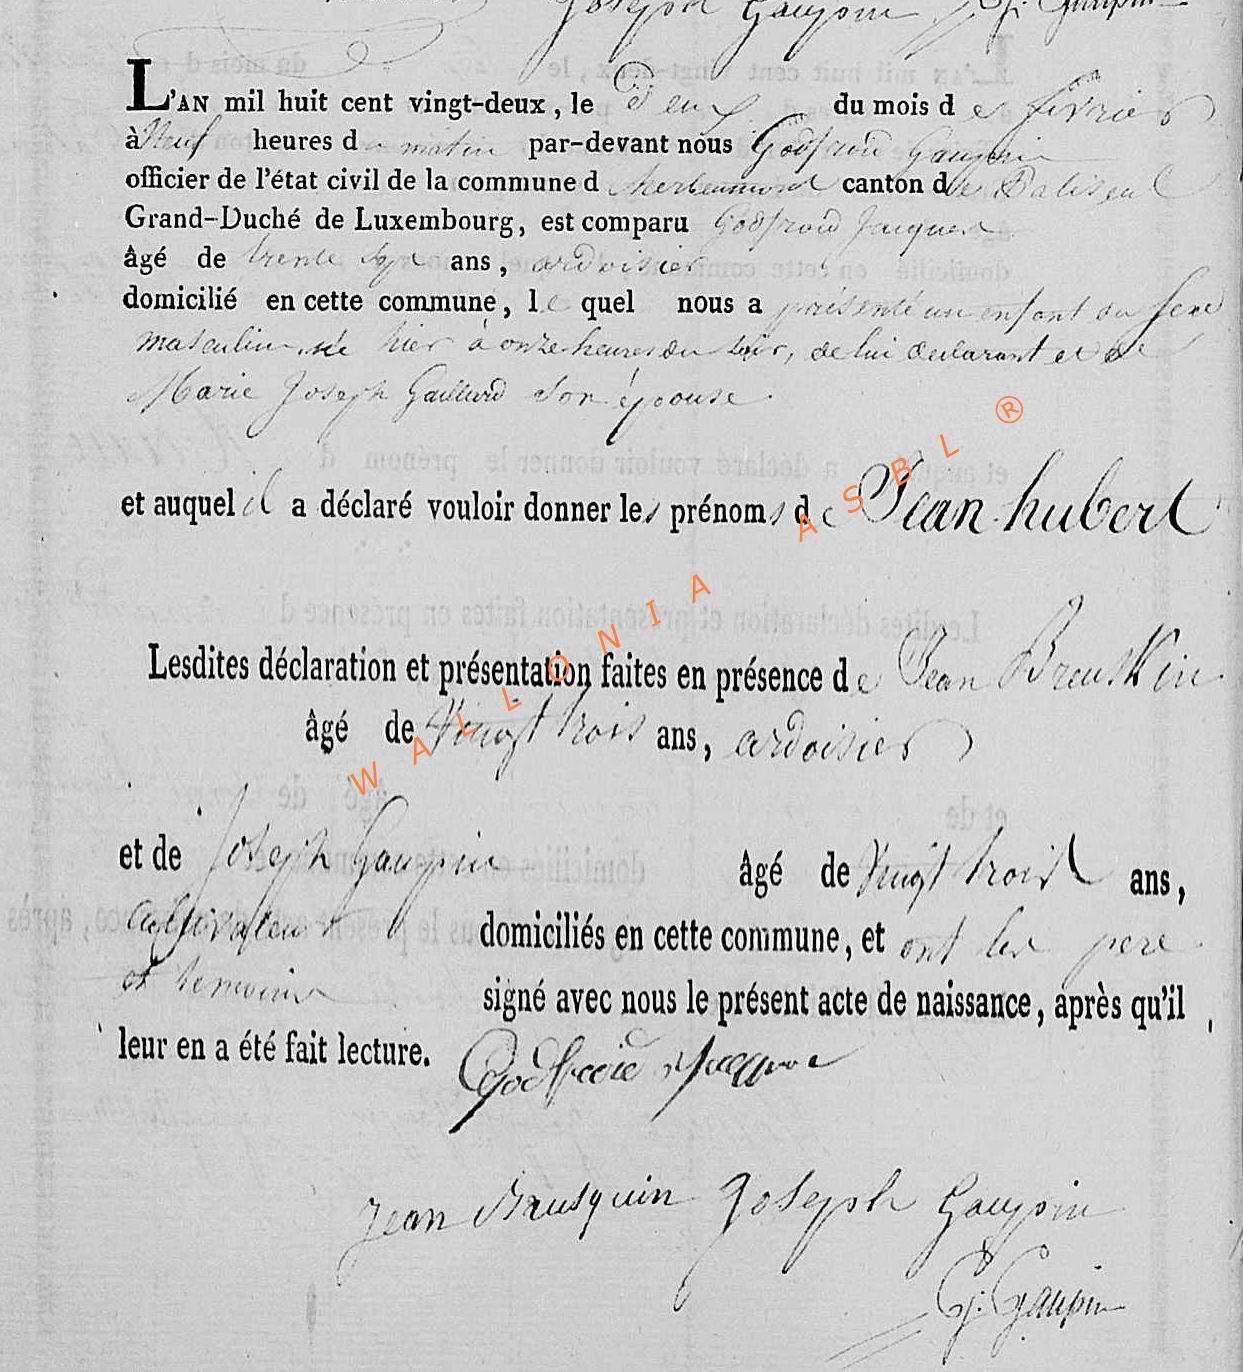 Joseph Gaupin G. Gaupin
L'AN mil huit cent vingt-deux, le Deux du mois de fevrier
à Neuf heures du matin par-devant nous Godfroid Gaupin
officier de l'état civil de la commune d'herbeumont canton de Paliseul
Grand-Duché de Luxembourg, est comparu Godfroid Jacques
âgé de trente six ans, ardoisier
domicilié en cette commune, le quel nous a présenté un enfant du sexe
masculin, né hier à onze heures du soir, de lui declarant et de
Marie Joseph Gaillard son épouse
et auquel il a déclaré vouloir donner les prénoms de Jean hubert
Lesdites déclaration et présentation faites en présence de Jean Breuskin
âgé de Vingt trois ans, ardoisier
et de Joseph Gaupin âgé de Vingt trois ans,
cultivateur domiciliés en cette commune, et ont les pere
et temoins signé avec nous le présent acte de naissance, après qu'il
leur en a été fait lecture. Godfroid Jacques
Jean Brusquin Joseph Gaupin
G. Gaupin
WALLONIA ASBL ®